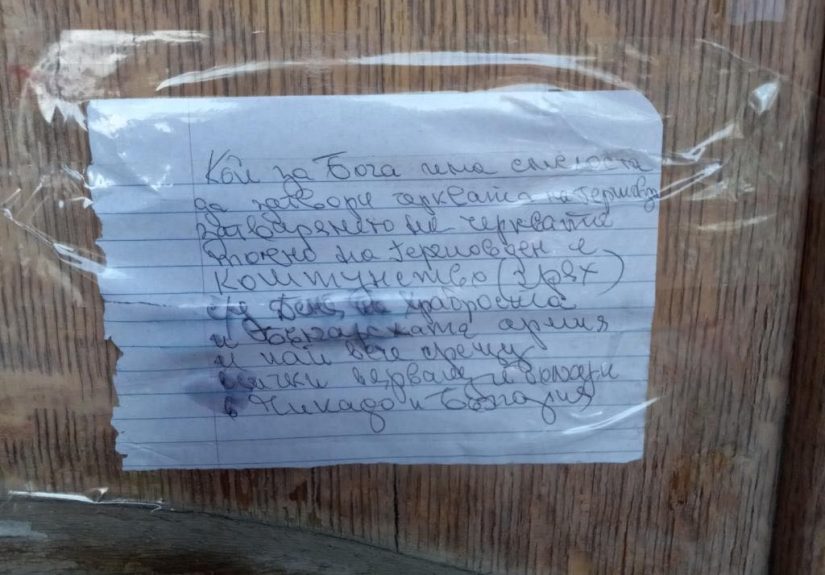 Кой за Бога има смелоста
да затвори церквата на Гергьовд
Затварянето на черквата
точно на Гергьовден е
кощунство (Грях)
Ден на храбростта
и Българската армия
и най вече срещу
всички вярващи българи
в Чикаго и България